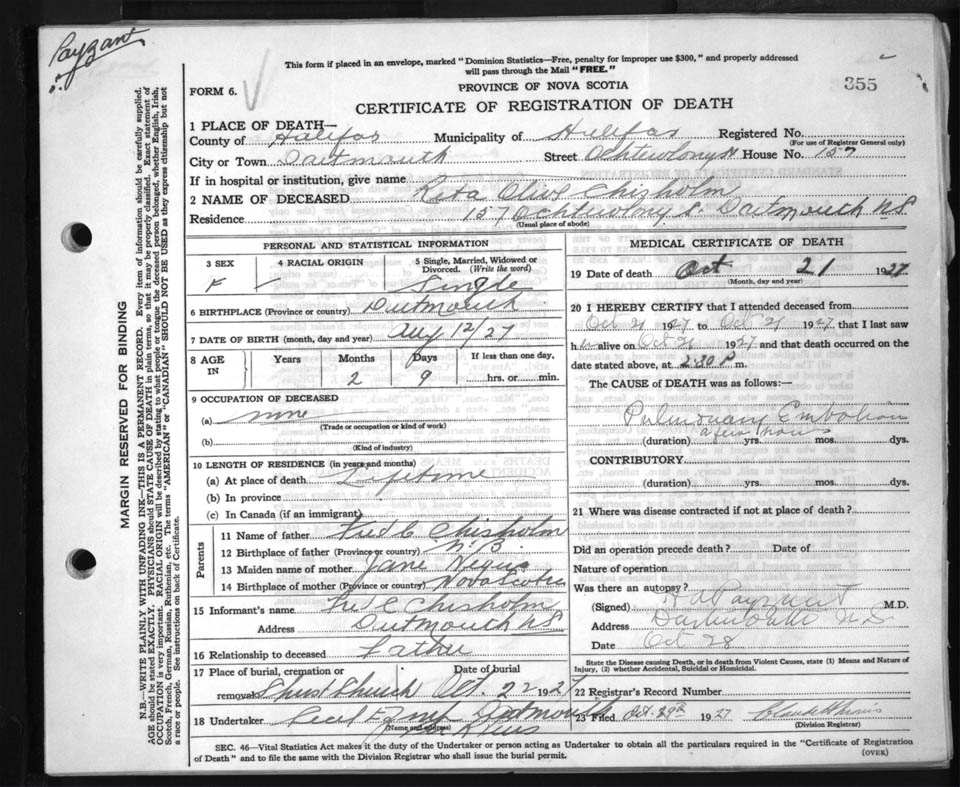 Payzant
This form if placed in an envelope, marked "Dominion Statistics—Free, penalty for improper use $300," and properly addressed
will pass through the Mail "FREE."
FORM 6.
PROVINCE OF NOVA SCOTIA
355
CERTIFICATE OF REGISTRATION OF DEATH
MARGIN RESERVED FOR BINDING
N.B.—WRITE PLAINLY WITH UNFADING INK—THIS IS A PERMANENT RECORD. Every item of information should be carefully supplied.
AGE should be stated EXACTLY. PHYSICIANS should STATE CAUSE OF DEATH in plain terms, so that it may be properly classified. Exact statement of
OCCUPATION is very important. RACIAL ORIGIN will be described by stating to what people or tongue the deceased person belonged, whether English, Irish,
Scotch, French, German, Russian, Ruthenian, etc. The terms "AMERICAN" or "CANADIAN" SHOULD NOT BE USED as they express citizenship but not
a race or people. See instructions on back of Certificate.
1 PLACE OF DEATH—
County of Halifax Municipality of Halifax Registered No.
(For use of Registrar General only)
City or Town Dartmouth Street Ochterlony St House No. 157
If in hospital or institution, give name
2 NAME OF DECEASED Rita Olive Chisholm
Residence 157 Ochterlony S. Dartmouth N.S.
(Usual place of abode)
PERSONAL AND STATISTICAL INFORMATION
3 SEX 4 RACIAL ORIGIN 5 Single, Married, Widowed or
Divorced. (Write the word)
F Single
6 BIRTHPLACE (Province or country) Dartmouth
7 DATE OF BIRTH (month, day and year) Aug 12/27
8 AGE IN Years Months Days If less than one day,
2 9 hrs. or min.
9 OCCUPATION OF DECEASED
(a) none
(Trade or occupation or kind of work)
(b)
(Kind of industry)
10 LENGTH OF RESIDENCE (in years and months)
(a) At place of death Lifetime
(b) In province
(c) In Canada (if an immigrant)
Parents
11 Name of father Fred C Chisholm
12 Birthplace of father (Province or country) N.B.
13 Maiden name of mother Jane
14 Birthplace of mother (Province or country) Nova Scotia
15 Informant's name Fred C Chisholm
Address Dartmouth N.S.
16 Relationship to deceased Father
17 Place of burial, cremation or Date of burial
removal Christ Church Oct. 22 1927
18 Undertaker Cecil E Zink Dartmouth
(Name and address)
MEDICAL CERTIFICATE OF DEATH
19 Date of death Oct 21 1927
(Month, day and year)
20 I HEREBY CERTIFY that I attended deceased from
Oct 21 1927 to Oct 21 1927, that I last saw
h alive on Oct 21 1927 and that death occurred on the
date stated above, at 2:30 P m.
The CAUSE of DEATH was as follows:—
Pulmonary Embolism
a few hours
(duration) yrs. mos. dys.
CONTRIBUTORY
(duration) yrs. mos. dys.
21 Where was disease contracted if not at place of death?
Did an operation precede death? Date of
Nature of operation
Was there an autopsy?
(Signed) Payzant M.D.
Address Dartmouth N.S
Date Oct 28
State the Disease causing Death, or in death from Violent Causes, state (1) Means and Nature of
Injury, (2) whether Accidental, Suicidal or Homicidal.
22 Registrar's Record Number
23 Filed Oct. 29th 1927
(Division Registrar)
SEC. 46—Vital Statistics Act makes it the duty of the Undertaker or person acting as Undertaker to obtain all the particulars required in the "Certificate of Registration
of Death" and to file the same with the Division Registrar who shall issue the burial permit.
(OVER)